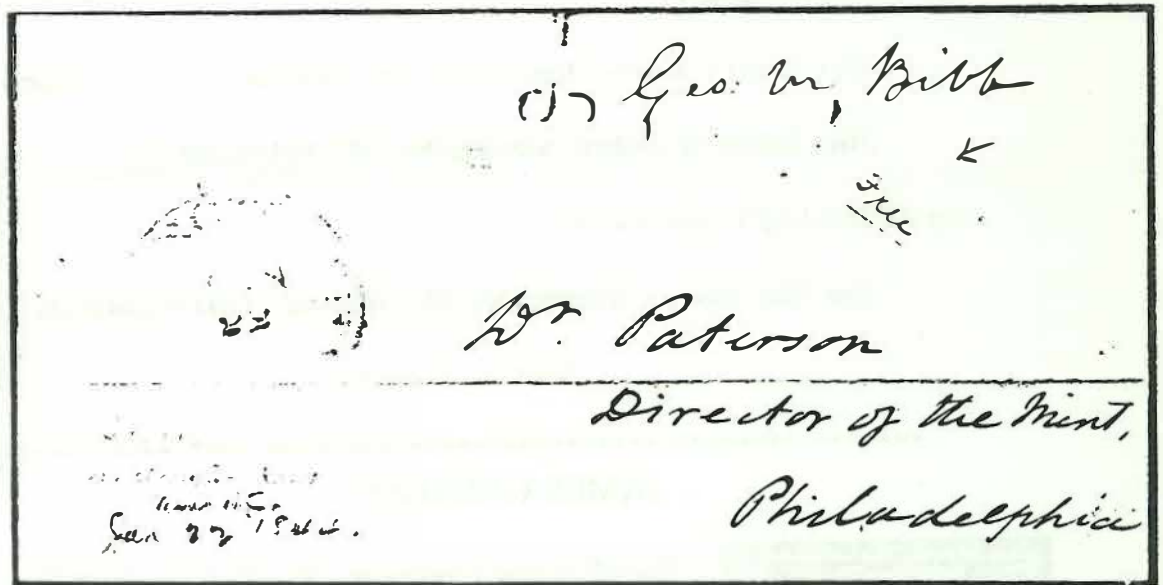 Geo: M, Bibb
Free
22
Dr. Paterson
Director of the Mint,
Philadelphia